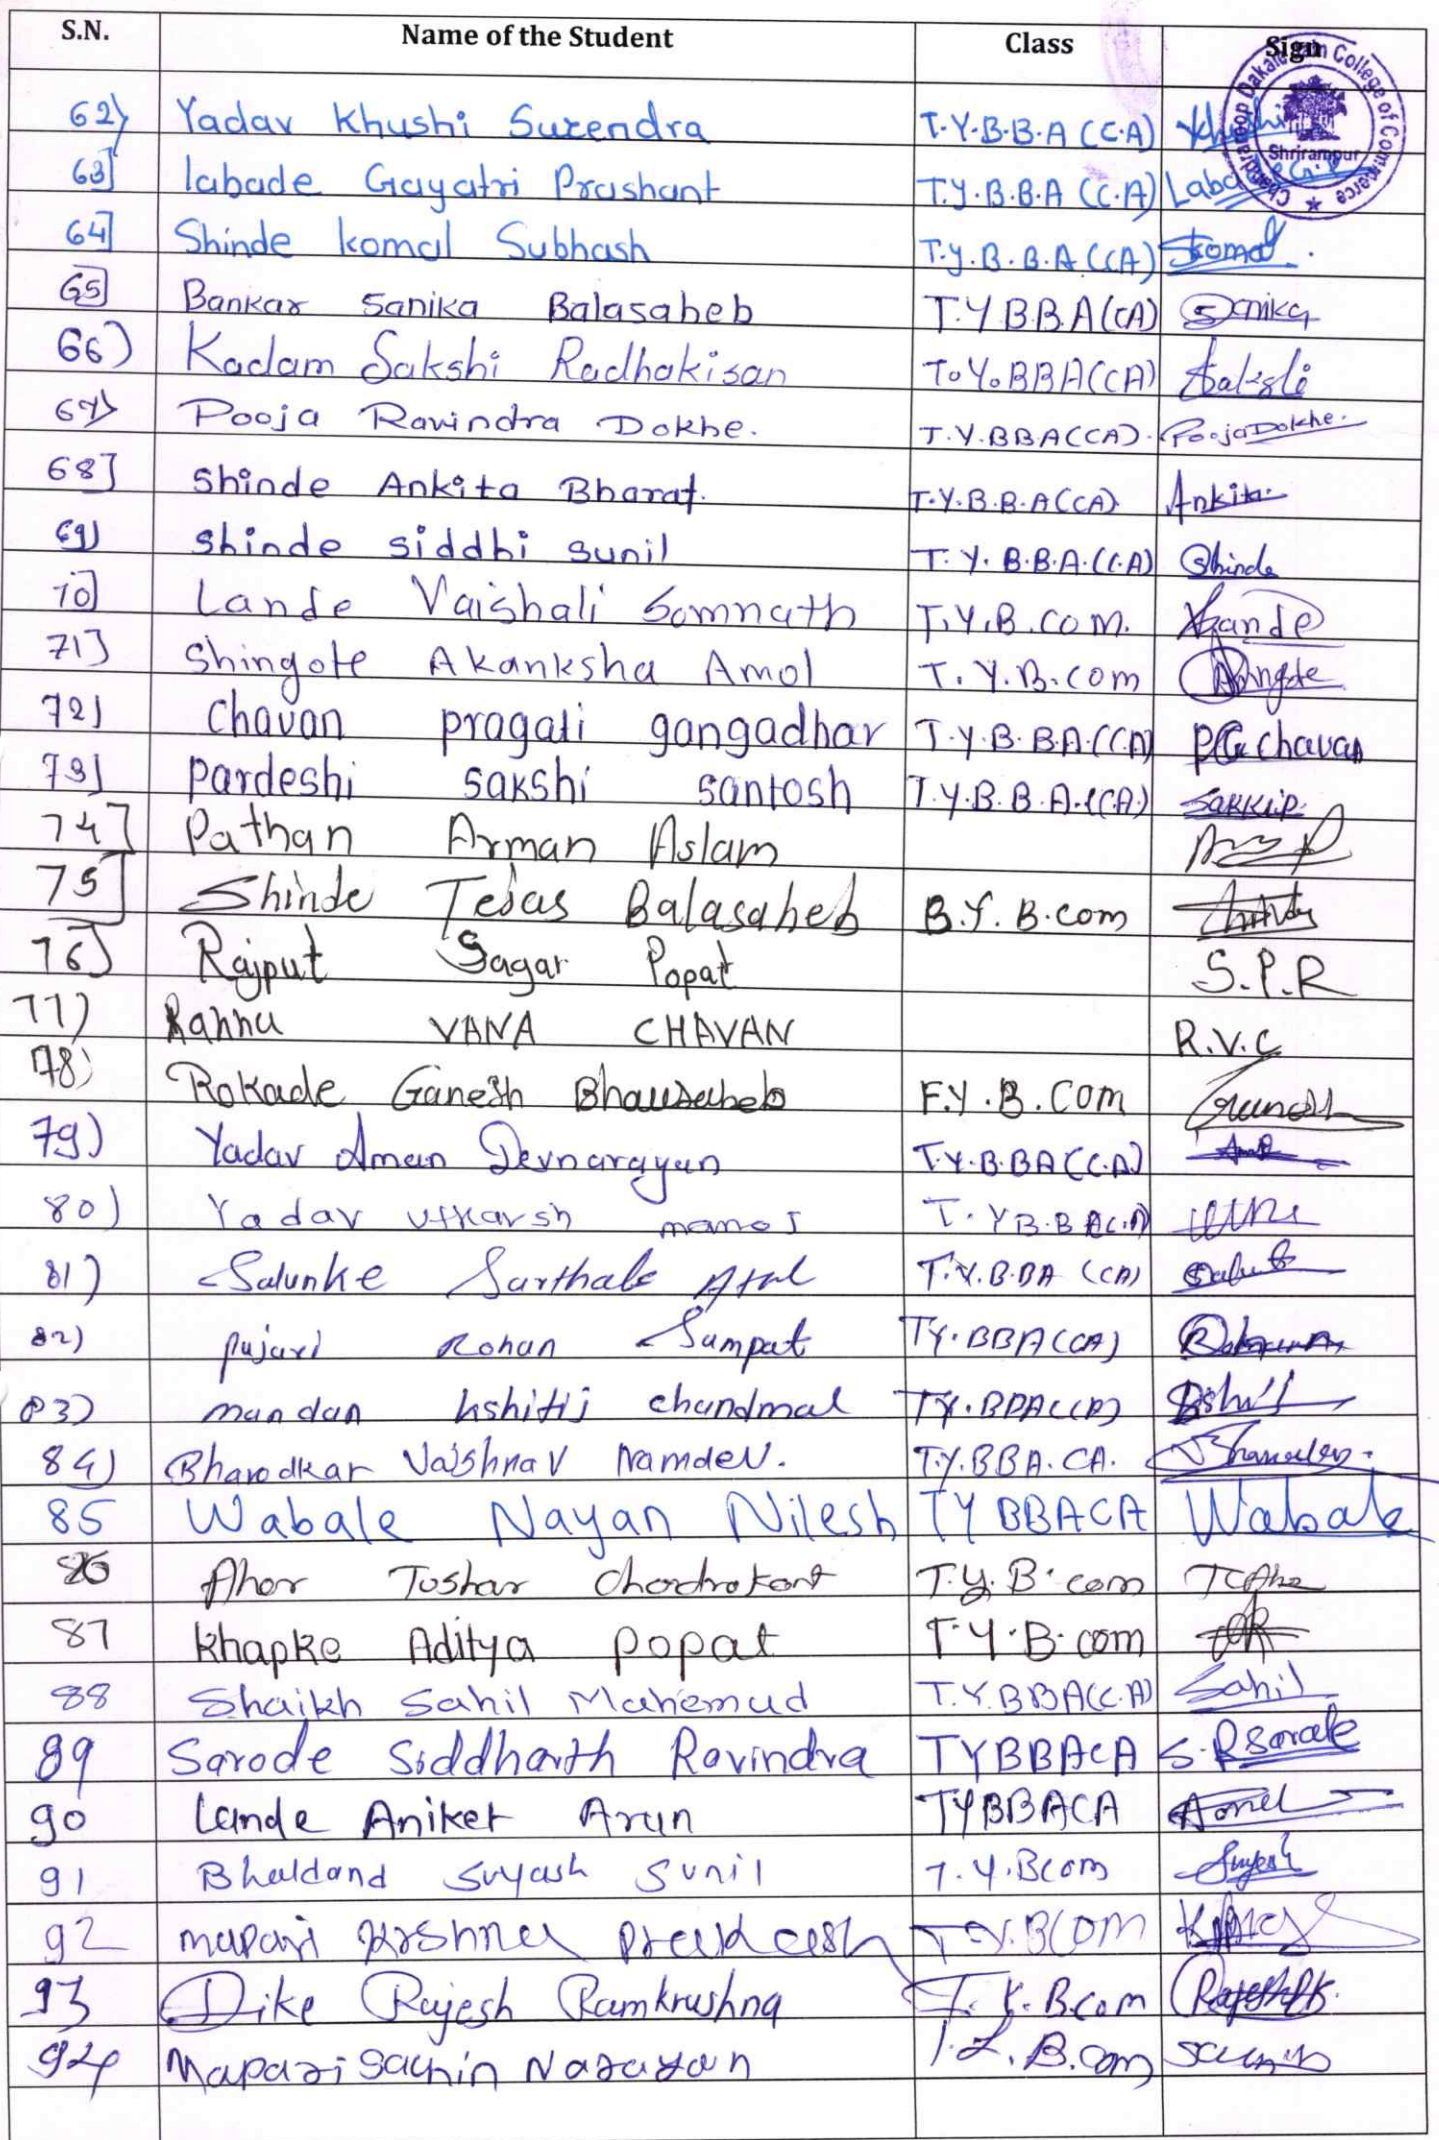 S.N. Name of the Student Class Sign
Chandraroop Dakale Jain College of Commerce Shrirampur
62) Yadav Khushi Surendra T.Y.B.B.A (C.A) Khushi
63] labade Gayatri Prashant T.Y.B.B.A (C.A) Labade G.P
64] Shinde komal Subhash T.y.B.B.A (CA) Skomal.
65] Bankar Sanika Balasaheb T.Y B.B.A (CA) Sanika
66) Kadam Sakshi Radhakisan T.Y.BBA(CA) Sakshi
67) Pooja Ravindra Dokhe. T.Y.BBA(CA). PoojaDokhe.
68] Shinde Ankita Bharat. T.Y.B.B.A(CA). Ankita
69) Shinde siddhi sunil T.Y.B.B.A.(C.A) Shinde
70] Lande Vaishali Somnath T.Y.B.COM. Lande
71] Shingote Akanksha Amol T.Y.B.com
72) Chavan pragati gangadhar T.Y.B.B.A.(C.A) P.G.chavan
73] Pardeshi sakshi santosh T.Y.B.B.A.(CA)
74] Pathan Arman Aslam
75] Shinde Tejas Balasaheb B.Y.B.com
76] Rajput Sagar Popat S.P.R
77) VANA CHAVAN R.V.C
78) Rokade Ganesh Bhausaheb F.Y.B.COM Ganesh
79) Yadav Aman Devnarayan T.Y.B.BA(C.A)
80) Yadav utkarsh manoj T.YB.BA(C.A)
81) Salunke Sarthak Atul T.Y.B.BA (CA)
82) pujari Rohan Sampat TY.BBA(CA)
83) mandan kshitij chandmal TY.BBA(CA)
84) Bharodkar Vaishnav Namdev. T.Y.BBA.CA.
85 Wabale Nayan Nilesh TY BBACA Wabale
86 Aher Tushar Chandrakant T.Y.B.com
87 khapke Aditya popat T.Y.B.com
88 Shaikh Sahil Mahemud T.Y.BBA(C.A) Sahil
89 Sarode Siddharth Ravindra TYBBACA S.R Sarode
90 Lande Aniket Arun TYBBACA
91 Bhaldand Suyash Sunil T.Y.Bcom Suyash
92 mapari krishna prakash T.Y.BCOM
93 Dike Rajesh Ramkrushna T.Y.B.com
94 Mapari Sachin Narayan T.Y.B.com Sachin